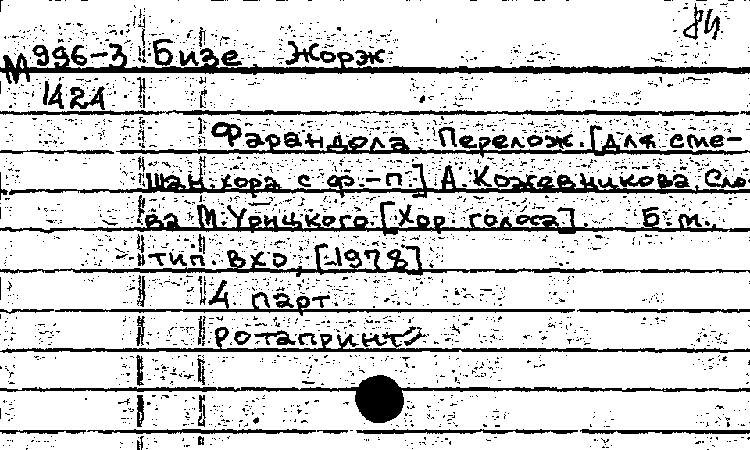 84
М 996-3 Бизе, Жорж
1424
Фарандола. Перелож. [для сме-
шан. хора с ф.-п.] А. Кожевникова, Сло-
ва М. Урицкого. [Хор. голоса]. Б. м.,
тип. ВХО, [-1978].
4 парт.
Ротапринт